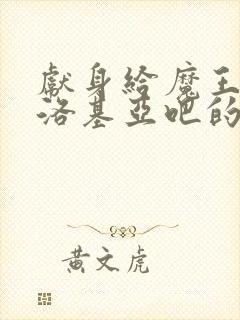 獻身給魔王
洛基亞吧的
黃文虎